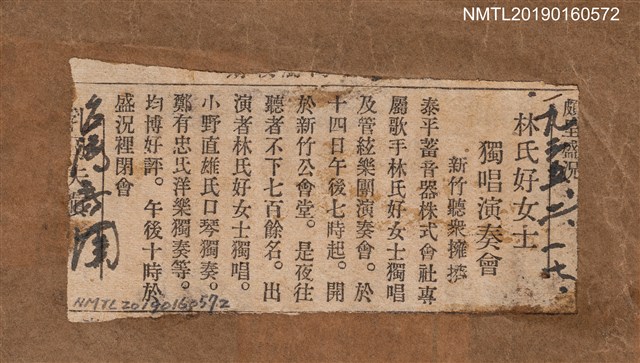 NMTL20190160572
頗呈盛況
一九三五、二、一七、
林氏好女士
獨唱演奏會
新竹聽衆擁擠
泰平蓄音器株式會社專
屬歌手林氏好女士獨唱
及管絃樂團演奏會。於
十四日午後七時起。開
於新竹公會堂。是夜往
聽者不下七百餘名。出
演者林氏好女士獨唱。
小野直雄氏口琴獨奏。
鄭有忠氏洋樂獨奏等。
均博好評。午後十時於
盛況裡閉會
台灣新聞
NMTL20190160572